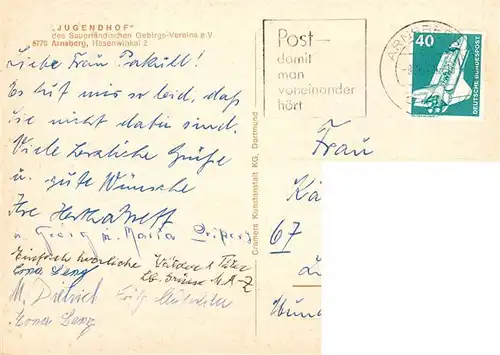 "JUGENDHOF"
des Sauerländischen Gebirgs-Vereins e.V.
5770 Arnsberg, Hasenwinkel 2
Liebe Frau Pakull!
Es tut mir so leid, daß
Sie nicht dabei sind.
Viele herzliche Grüße
u. gute Wünsche
Ihre Hertha
u. Georg u. Maria
Einfach herrliche Wälder u. Tiere
Lona Lenz
M. Dietrich Fritz
Lona Lenz
Cramers Kunstanstalt KG, Dortmund
Post—
damit
man
voneinander
hört
ARNSBERG
40
DEUTSCHE BUNDESPOST
Frau
Kä
67